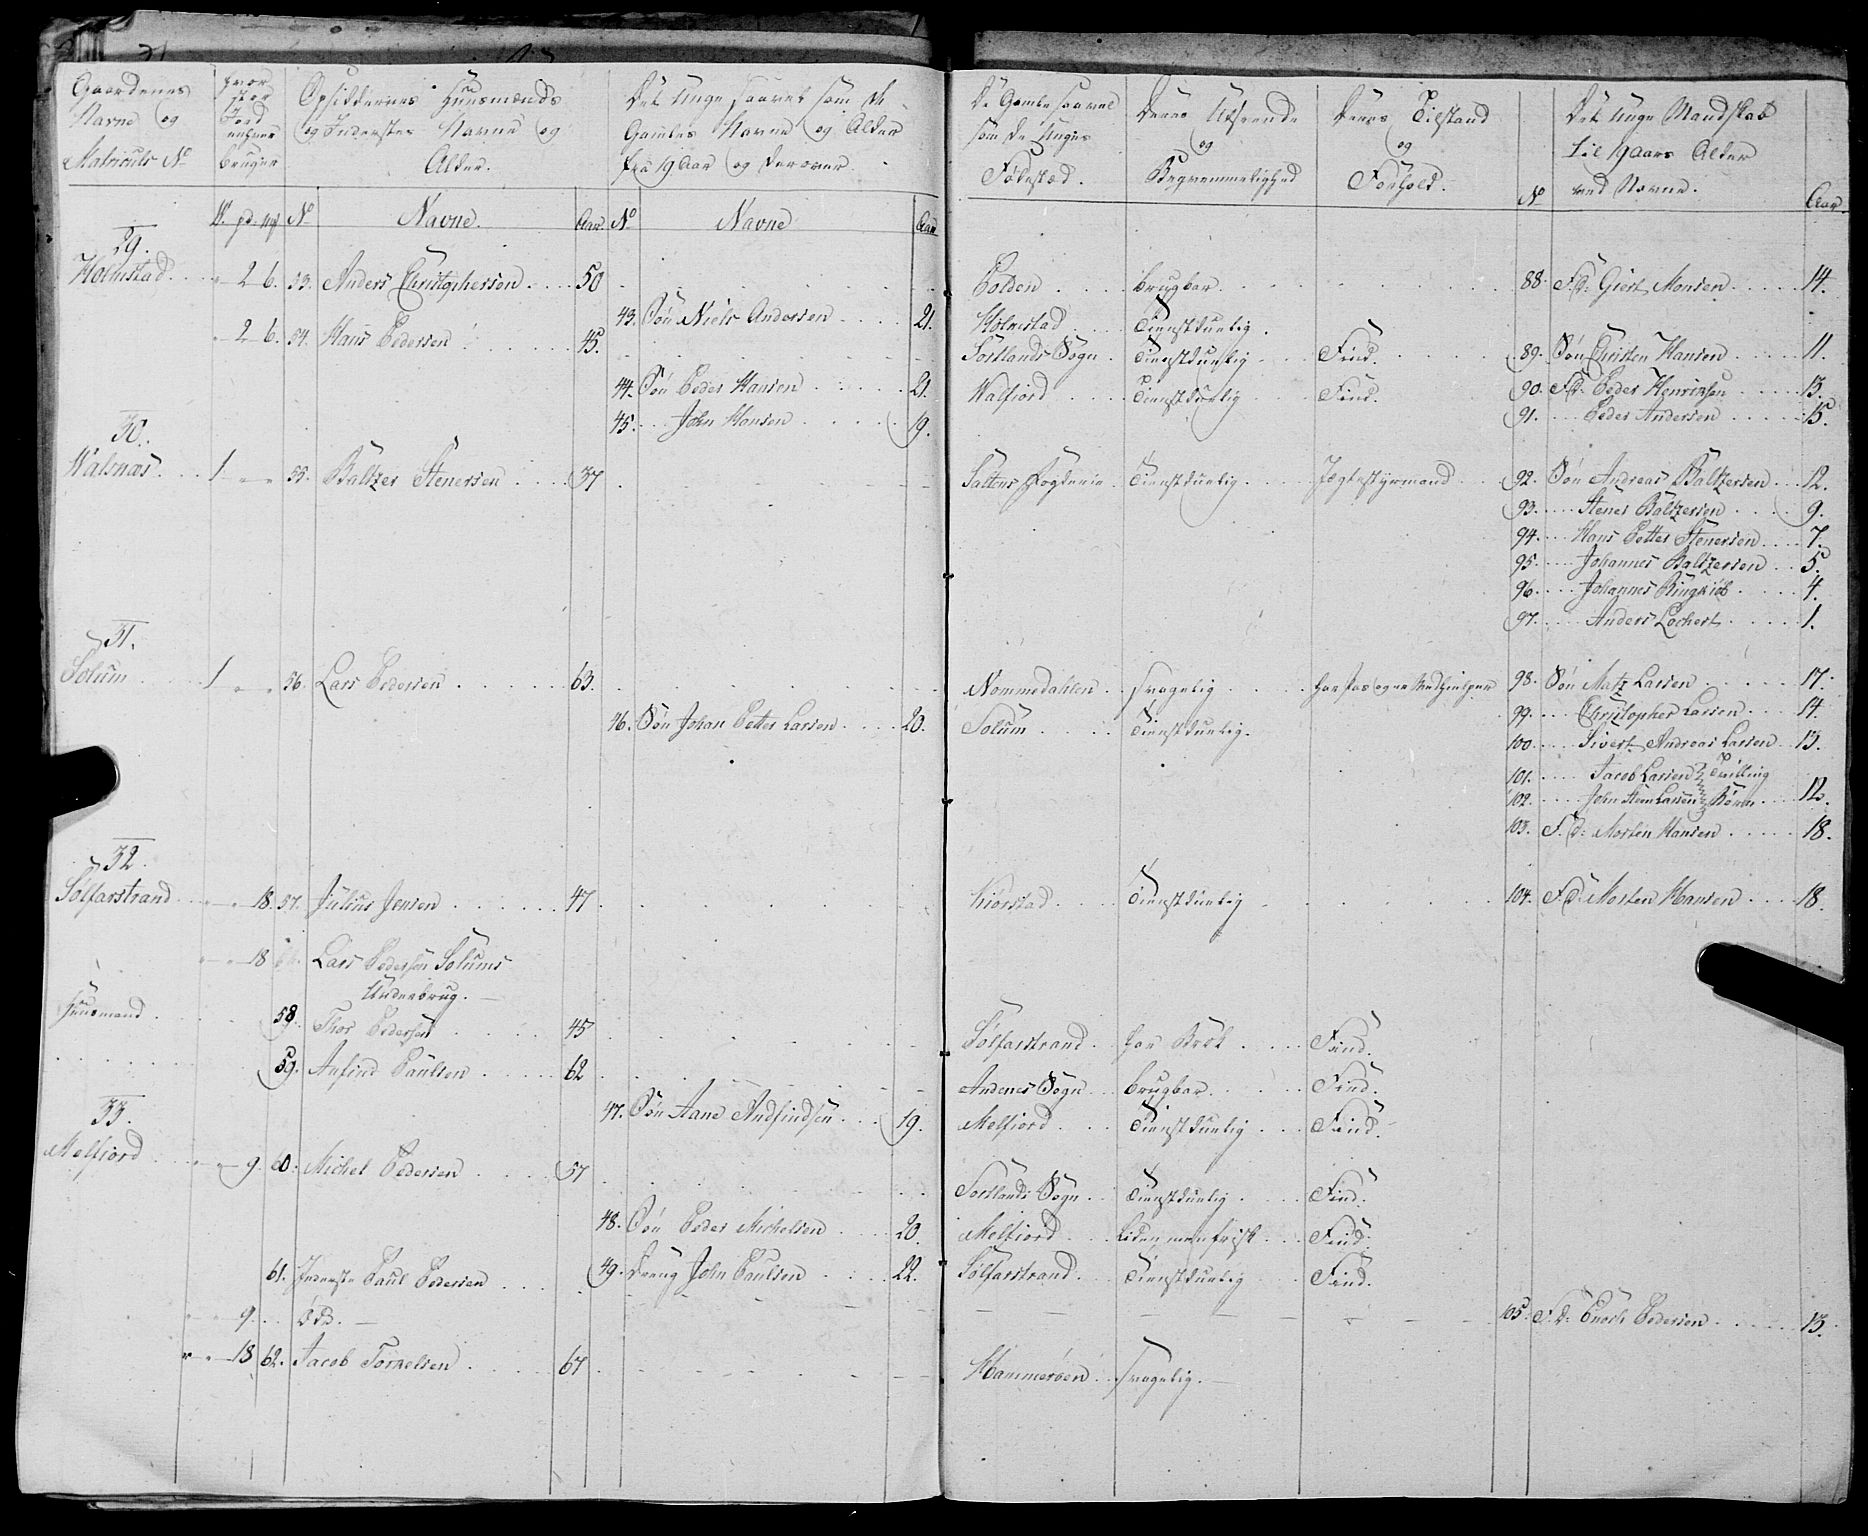 Gaardenes
Navne og
Matriculs No
hvor
stor
Jord
enhver
bruger
Opsiddernes Huusmænds
og Inderstes Navne og
Alder.
Det Unge saavel som de
Gamles Navne og Alder
fra 19 Aar og derover.
De Gamle saavel
som de Unges
Fødested.
Deres Udseende
og
Beqvemmelighed
Deres Tilstand
og
Forhold.
Det Unge Mandskab
til 19 Aars Alder
ved Navne.
W. pd. mk No Navne. Aar. No Navne Aar No Aar.
29.
Holmstad 2 6. 53. Anders Christophersen 50 Bolden brugbar 88. F.d: Giert Monsen 14.
43. Søn Niels Andersen 21. Holmstad Tienstduelig.
2 6. 54. Hans Pedersen 45. Sortlands Sogn Tienstduelig Find. 89. Søn Christen Hansen 11.
44. Søn Peder Hansen 21. Walfiord Tienstduelig Find. 90. F.d: Peder Henriksen 13.
45. John Hansen 19. 91. Peder Andersen 15.
30.
Walsnæs 1 " " 55. Baltzer Stenersen 37 Saltens Fogderie Tienstduelig Jægtestyrmand 92. Søn Andreas Baltzersen 12.
93. Stener Baltzersen 9.
94. Hans Petter Stenersen 7.
95. Johannes Baltzersen 5.
96. Johannes Ringkiøb 4.
97. Anders Lechert 1.
31.
Solum 1 " " 56. Lars Pedersen 63. Nommedahlen svagelig har Pas og er Medhielper 98. Søn Matz Larsen 17.
46. Søn Johan Petter Larsen 20. Solum Tienstduelig. 99. Christopher Larsen 14.
100. Sivert Andreas Larsen 13.
101. Jacob Larsen Tvilling
102. John Steen Larsen Børn 12.
103. F.d: Morten Hansen 18.
32.
Solfarstrand " " 18. 57. Julius Jensen 47 Kiørstad Tienstduelig 104. F.d: Morten Hansen 18.
" " 18 Lars Pedersen Solums
Underbrug.
Huusmand 58. Thor Pedersen 45 Solfarstrand har Brok Find.
59. Anfind Paulsen 62 Andenes Sogn brugbar Find.
47. Søn Aane Andfindsen 19. Melfiord Tienstduelig Find.
33.
Melfiord " " 9. 60. Michel Pedersen 57 Sortlands Sogn Tienstduelig Find.
48. Søn Peder Mickelsen 20. Melfiord Liden men frisk Find.
61. Inderste Paul Pedersen 49. Dreng John Paulsen 22. Solfarstrand Tienstduelig Find.
" " 9. Øde. 105. F.d: Enoch Pedersen 13.
" " 18 62. Jacob Torkelsen 67 Hammerøen svagelig.